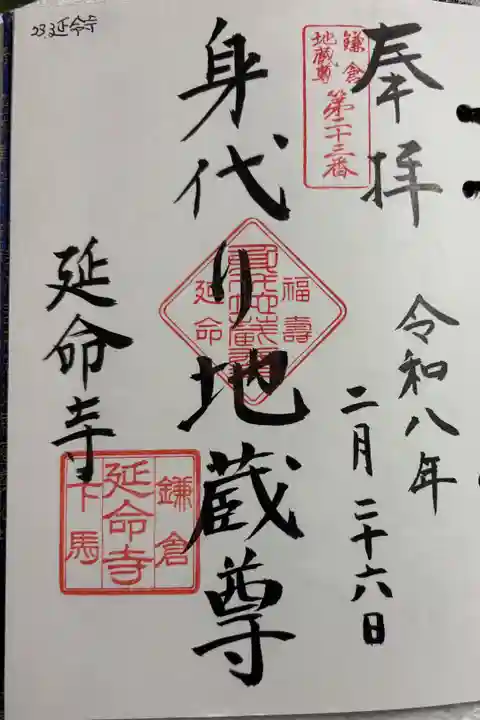 23.延命寺
奉拝
令和八年
二月二十六日
鎌倉
地蔵尊
第二十三番
身代り地蔵尊
福壽
延命
延命寺
鎌倉
延命寺
下馬